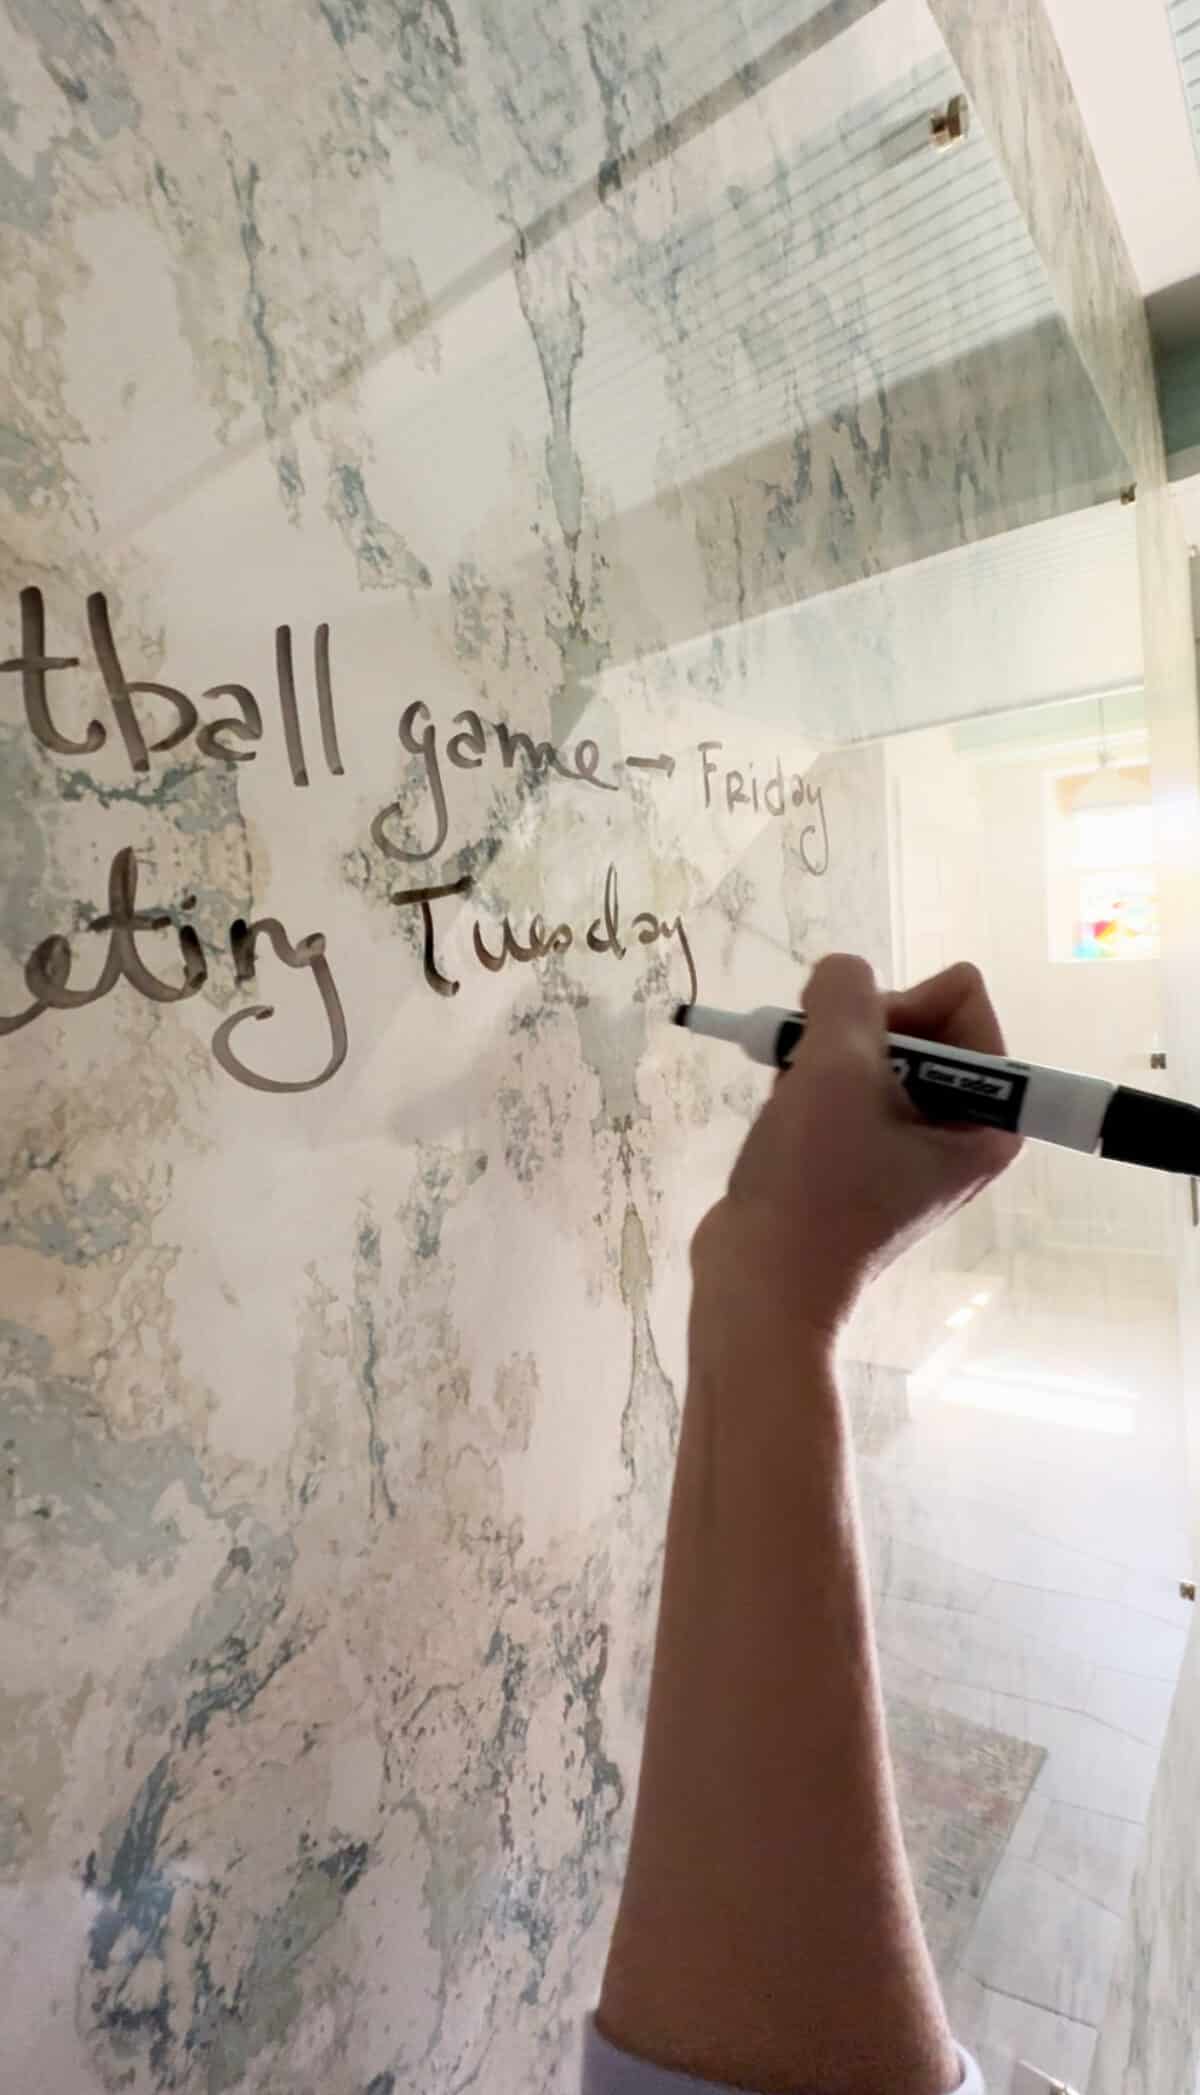 tball game → Friday
eting Tuesday
low odor